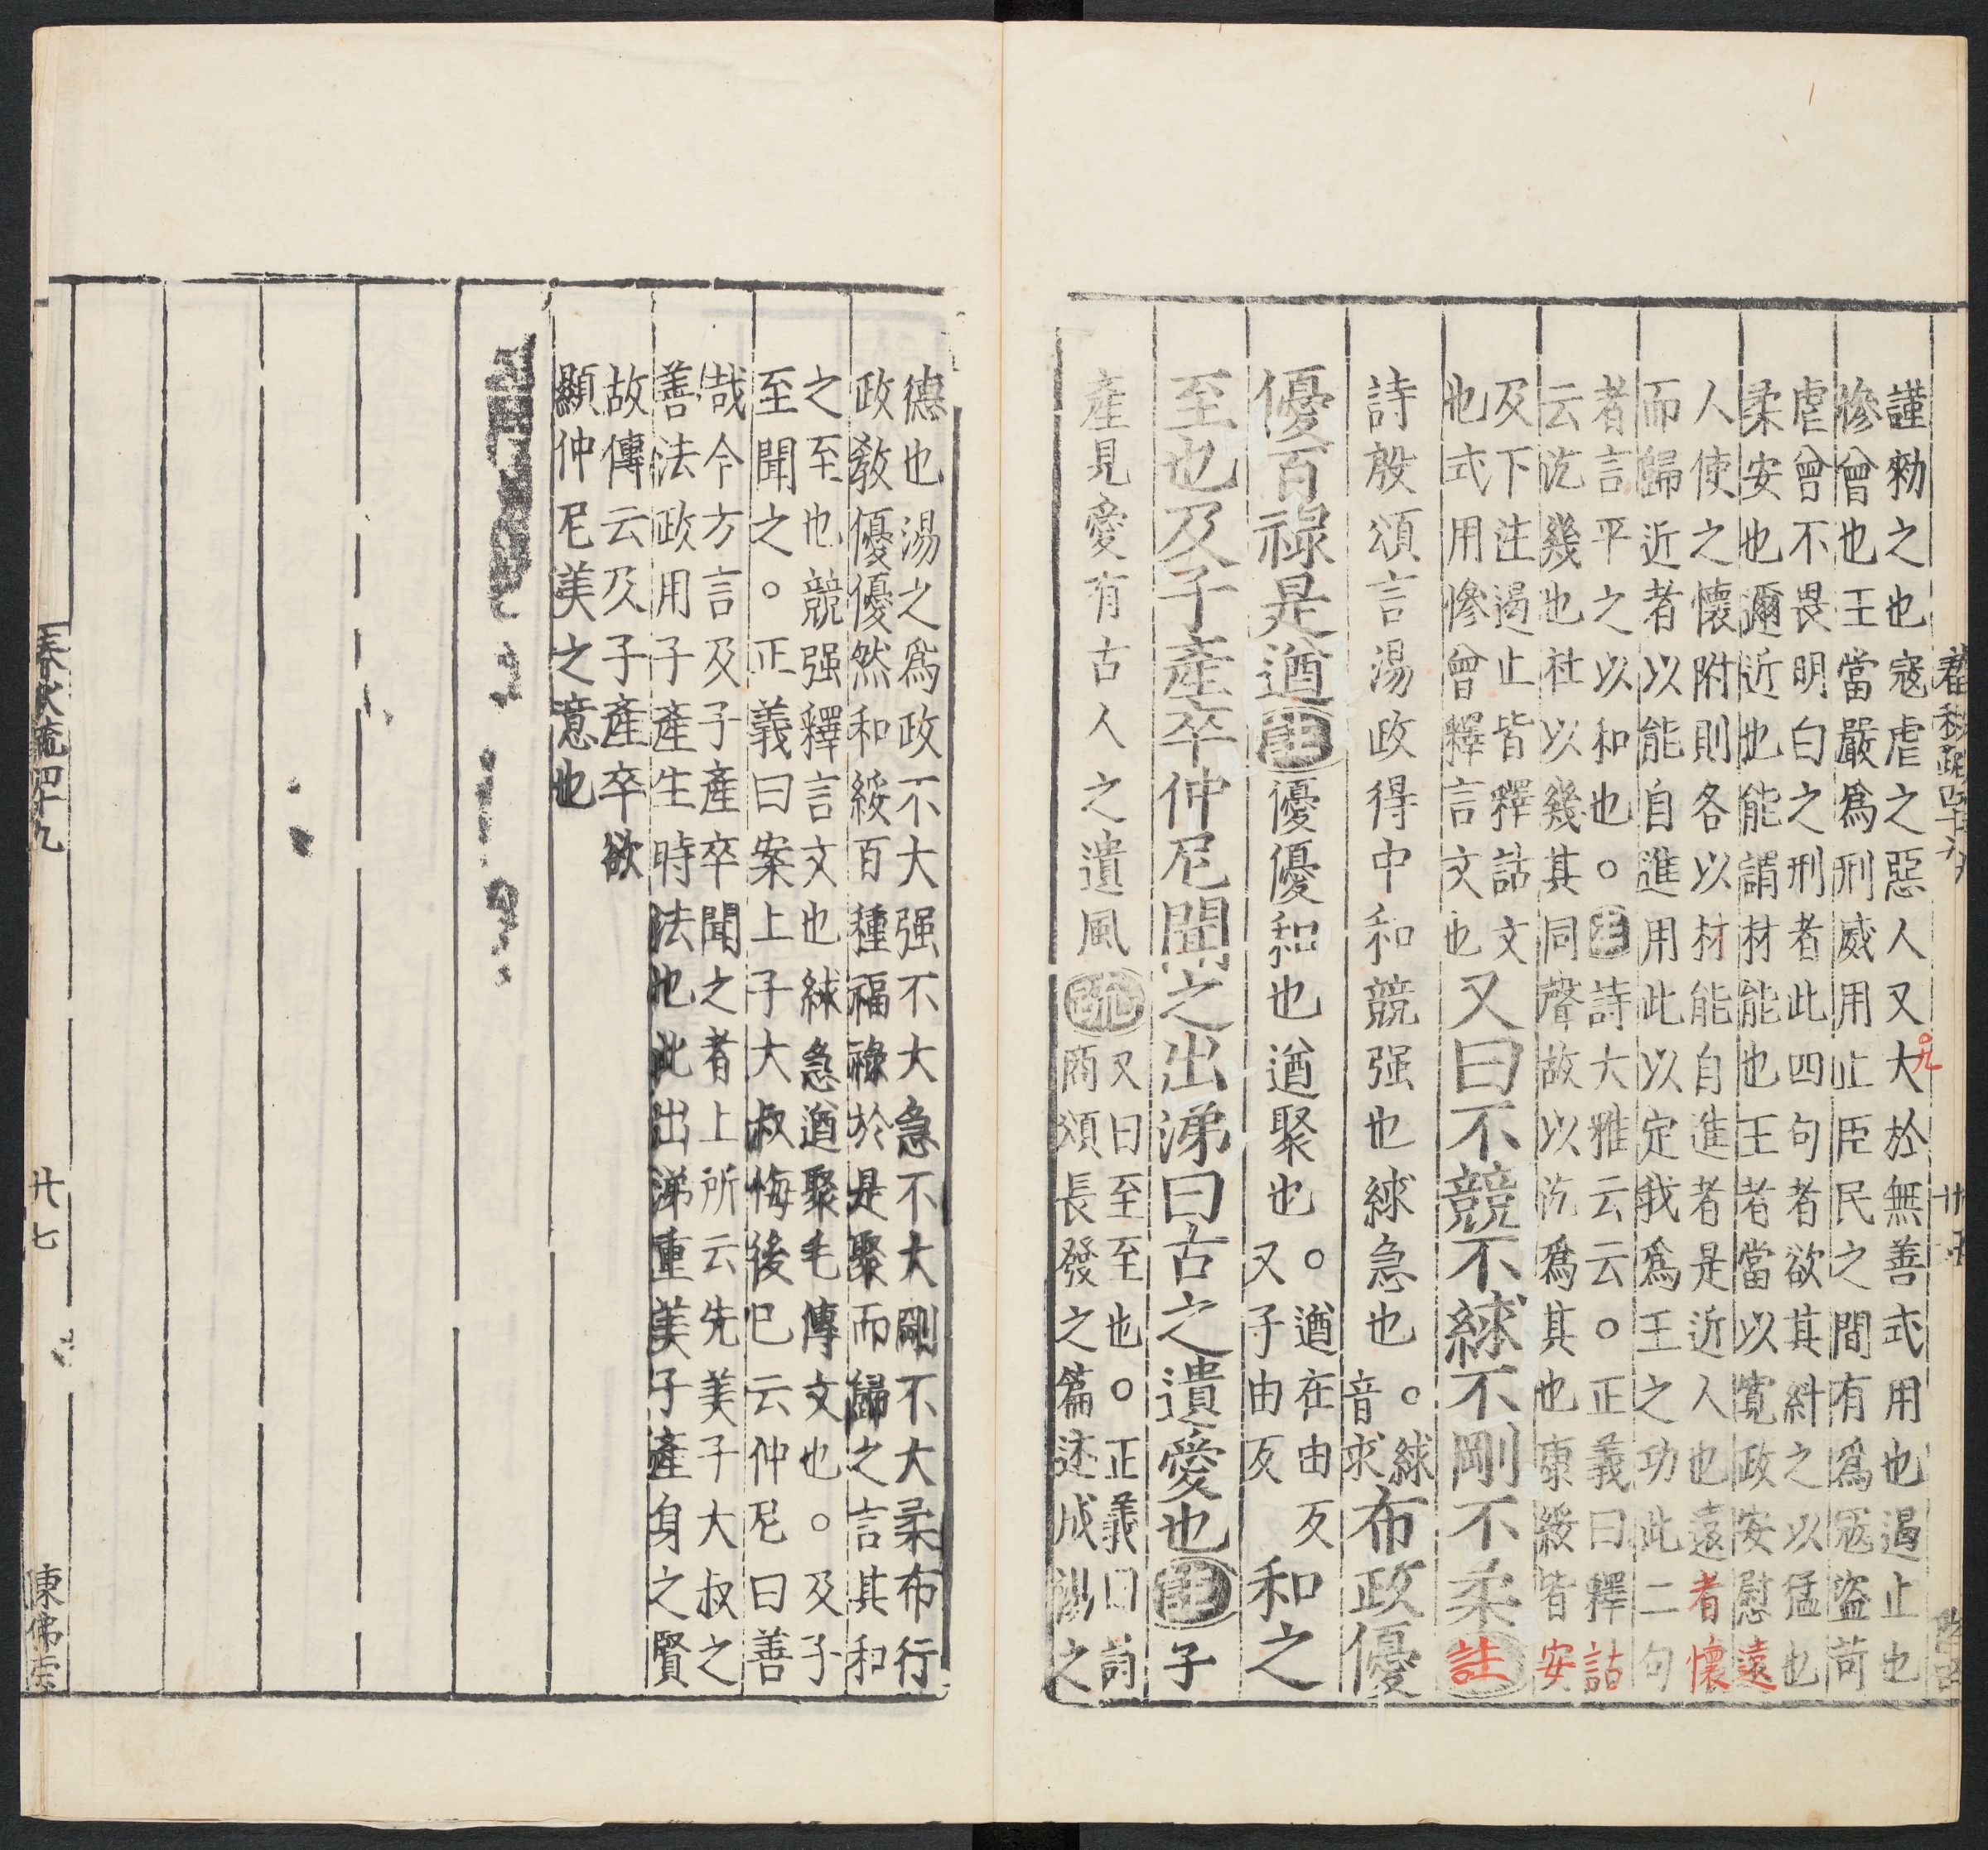 謹勑之也寇虐之惡人又大於無善式用也遏止也
慘曾也王當嚴爲刑威用止臣民之間有爲寇盜苛
虐曾不畏明白之刑者此四句者欲其糾之以猛也
柔安也邇近也能謂材能也王者當以寬政安慰遠
人使之懷附則各以材能自進者是近人也遠者懷
而歸近者以能自進用此以定我爲王之功此二句
者言平之以和也○注詩大雅云云○正義曰釋詁
云汔幾也杜以幾其同聲故以汔爲其也康綏皆安
及下注遏止皆釋詁文
也式用慘曾釋言文也又曰不競不絿不剛不柔註
詩殷頌言湯政得中和競强也絿急也○絿音求布政優
優百祿是遒註優優和也遒聚也○遒在由反又子由反和之
至也及子產卒仲尼聞之出涕曰古之遺愛也註子
產見愛有古人之遺風疏又曰至至也○正義曰詩
商頌長發之篇述成湯之
春秋疏四十九
德也湯之爲政不大强不大急不大剛不大柔布行
政敎優優然和綏百種福祿於是聚而歸之言其和
之至也競强釋言文也絿急遒聚毛傳文也○及子
至聞之○正義曰案上子大叔悔後已云仲尼曰善
哉今方言及子產卒聞之者上所云先美子大叔之
善法政用子產生時法也此出涕重美子產身之賢
故傳云及子產卒欲
顯仲尼美之意也
春秋疏四十九
廿七
陳佛榮